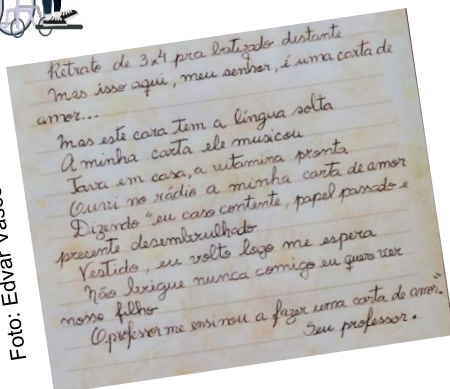 Retrato de 3x4 pra batizado distante
Mas isso aqui, meu senhor, é uma carta de
amor...
Mas este cara tem a língua solta
A minha carta ele musicou
Tava em casa, a vitamina pronta
Ouvi no rádio a minha carta de amor
Dizendo "eu caso contente, papel passado e
presente desembrulhado
Vestido, eu volto logo me espera
Não brigue nunca comigo eu quero ver
nosso filho
O professor me ensinou a fazer uma carta de amor."
Seu professor.
Foto: Edvar Vasco